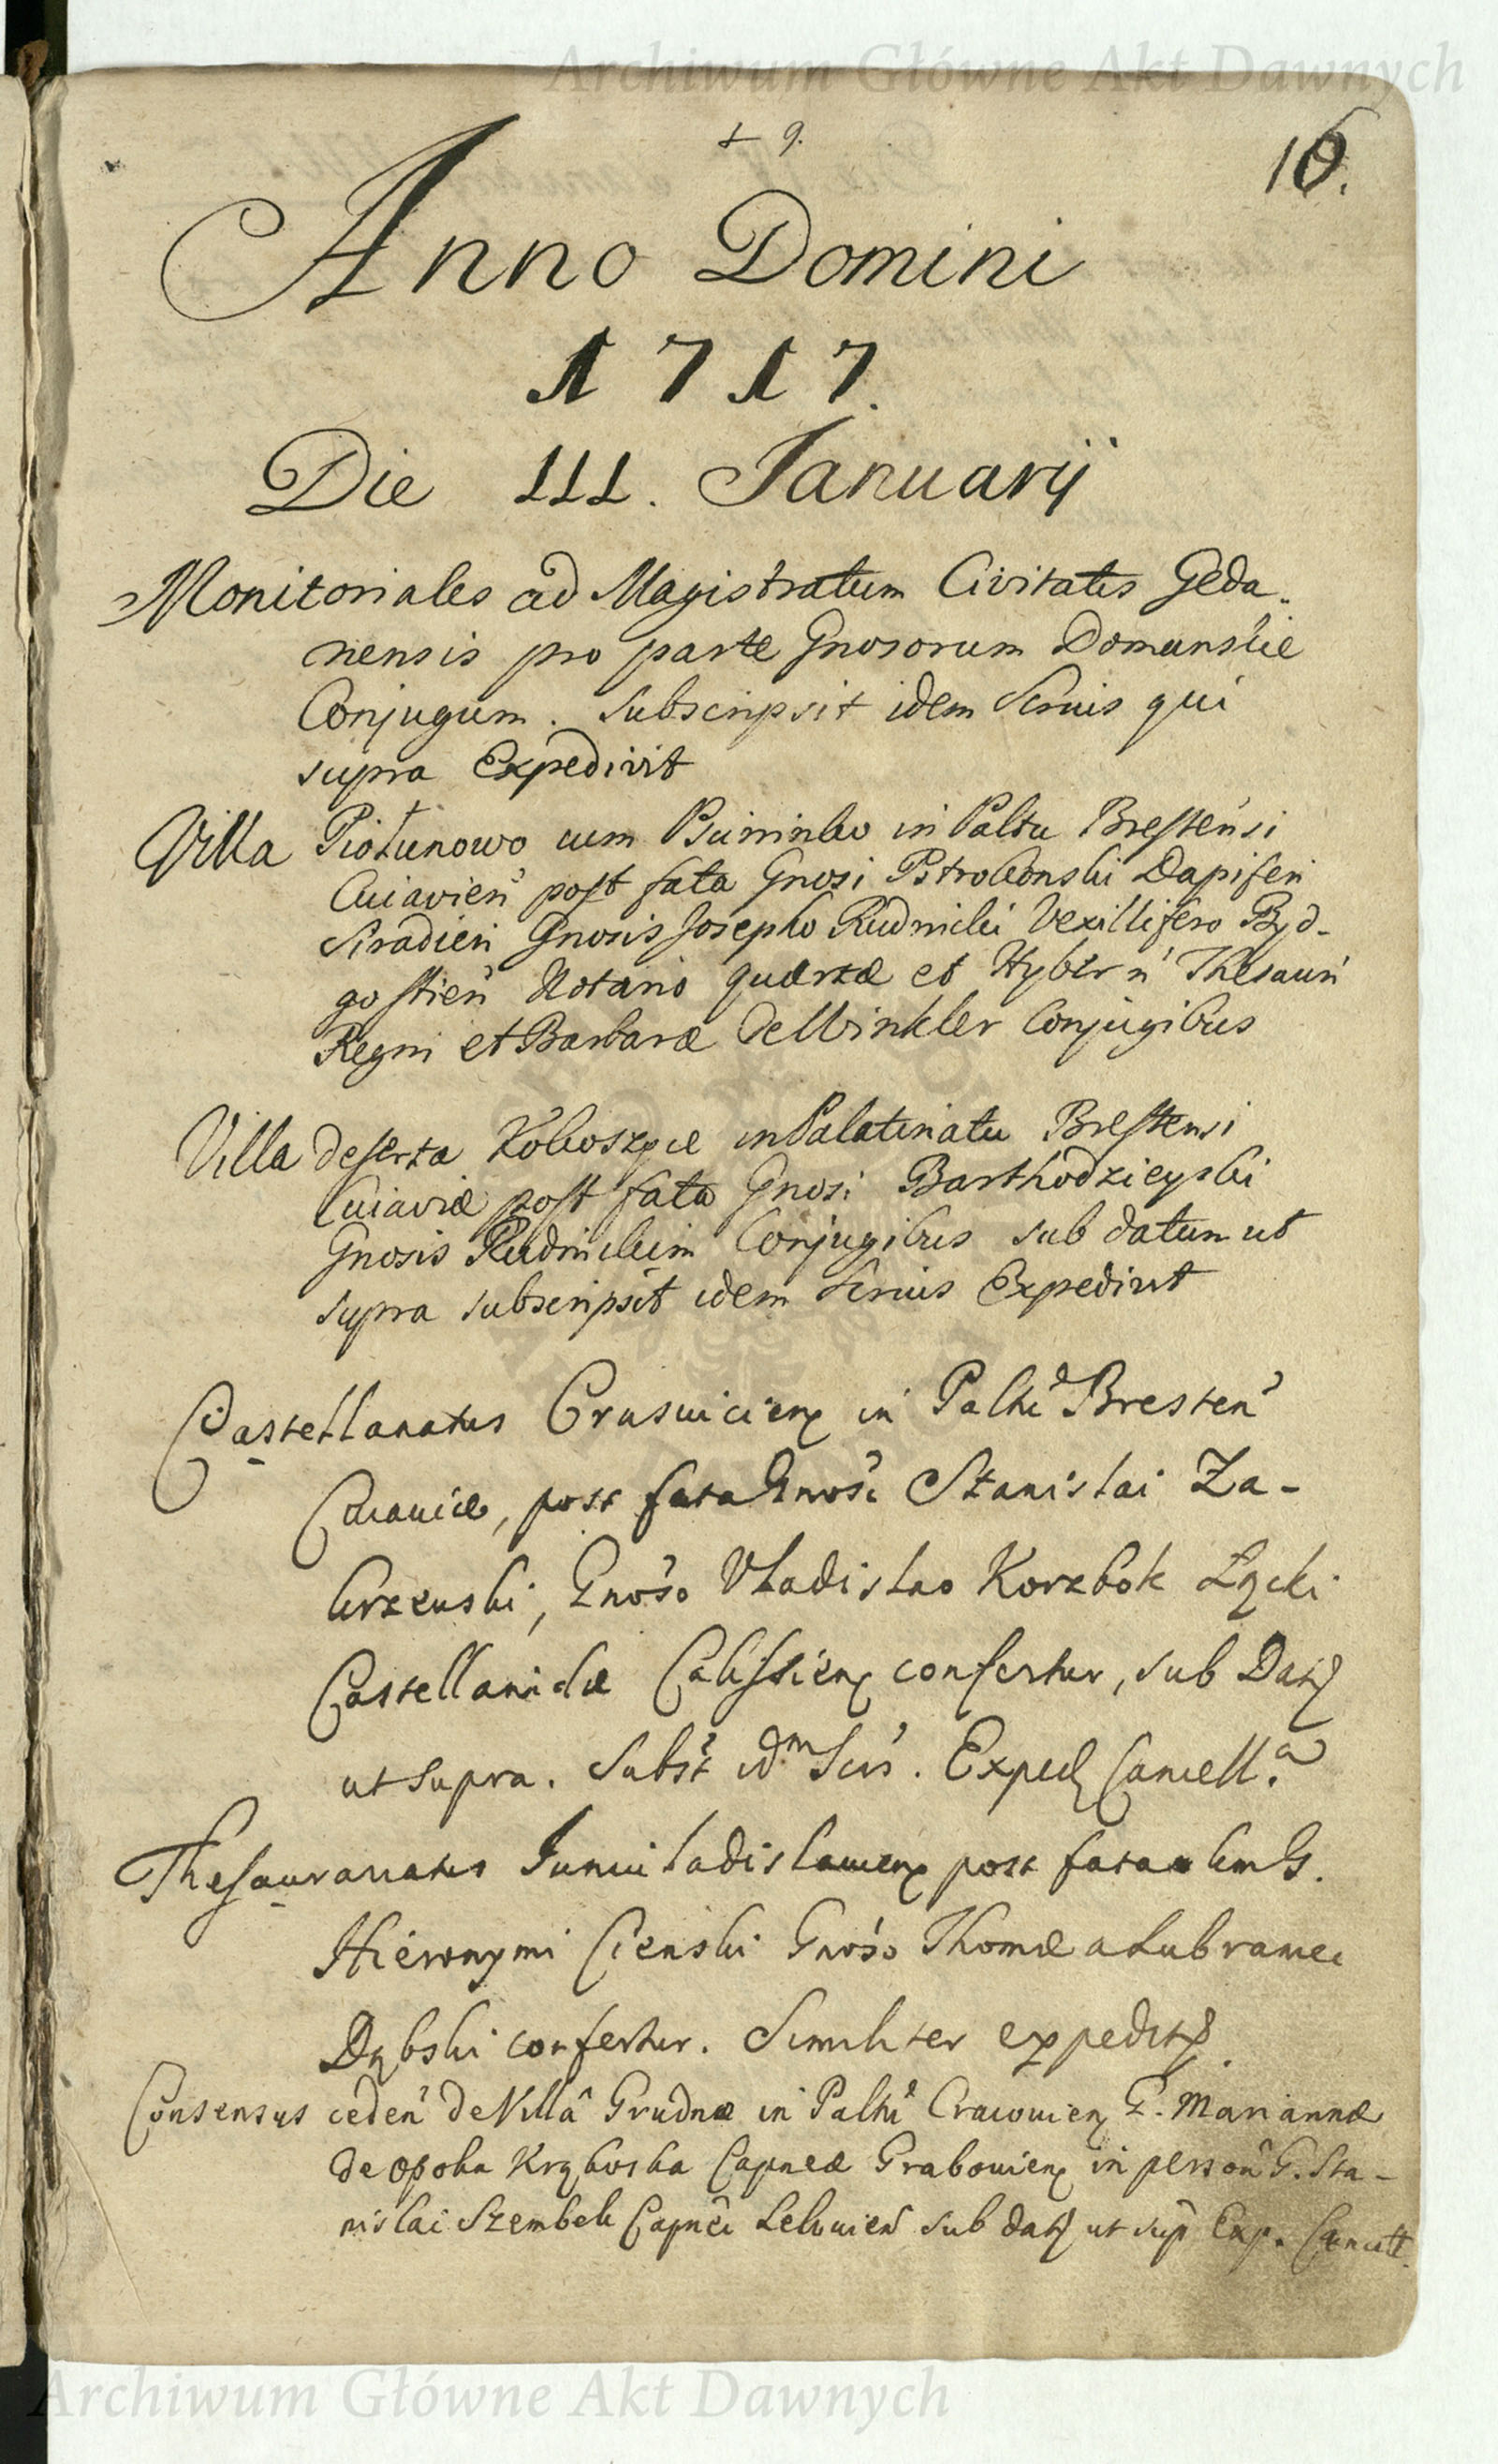 Archiwum Główne Akt Dawnych
+ 9.
16.
Anno Domini
1717.
Die III. Januarij
Monitoriales ad Magistratum Civitatis Geda-
nensis pro parte Gnosorum Domanskie
Conjugum. Subscripsit idem Sernis qui
supra Expedivit
Villa Piotunowo cum in Paltu Brestensi
Cuiavien post fata Gnosi Pstrokonski Dapiferi
Siradien Gnosis Josepho Rudnicki Vexillifero Byd-
gostien Notario quartæ et Hybern Thesauri
Regni et Barbaræ de Winkler Conjugibus
Villa deserta in Palatinatu Brestensi
Cuiaviæ post fata Gnosi Barthodzieyski
Gnosis Rudnickim Conjugibus sub datum ut
supra subscripsit idem Sernis Expedivit
Castellanatus Crusuicien in Paltu Bresten
Cuiauiæ, post fata Gnosi Stanislai Za-
krzewski, Gnoso Vladislao Korzbok Łącki
Castellanidæ Calissien confertur, sub Dat
ut supra. Subst idm Sers. Exped Cancell.a
Thesaurariatus Juniuladislauien post fata
Hieronymi Cienski Gnoso Thomæ a Lubraniec
Dąbski confertur. Similiter expedit.
Consensus ceden de Villa Grudna in Paltu Cracouien G. Mariannæ
de Opoka Krąkoska Capneæ Grabouien in person G. Sta-
nislai Szembek Capnei Lelouien sub dat ut sup Exp. Cancell.
Archiwum Główne Akt Dawnych